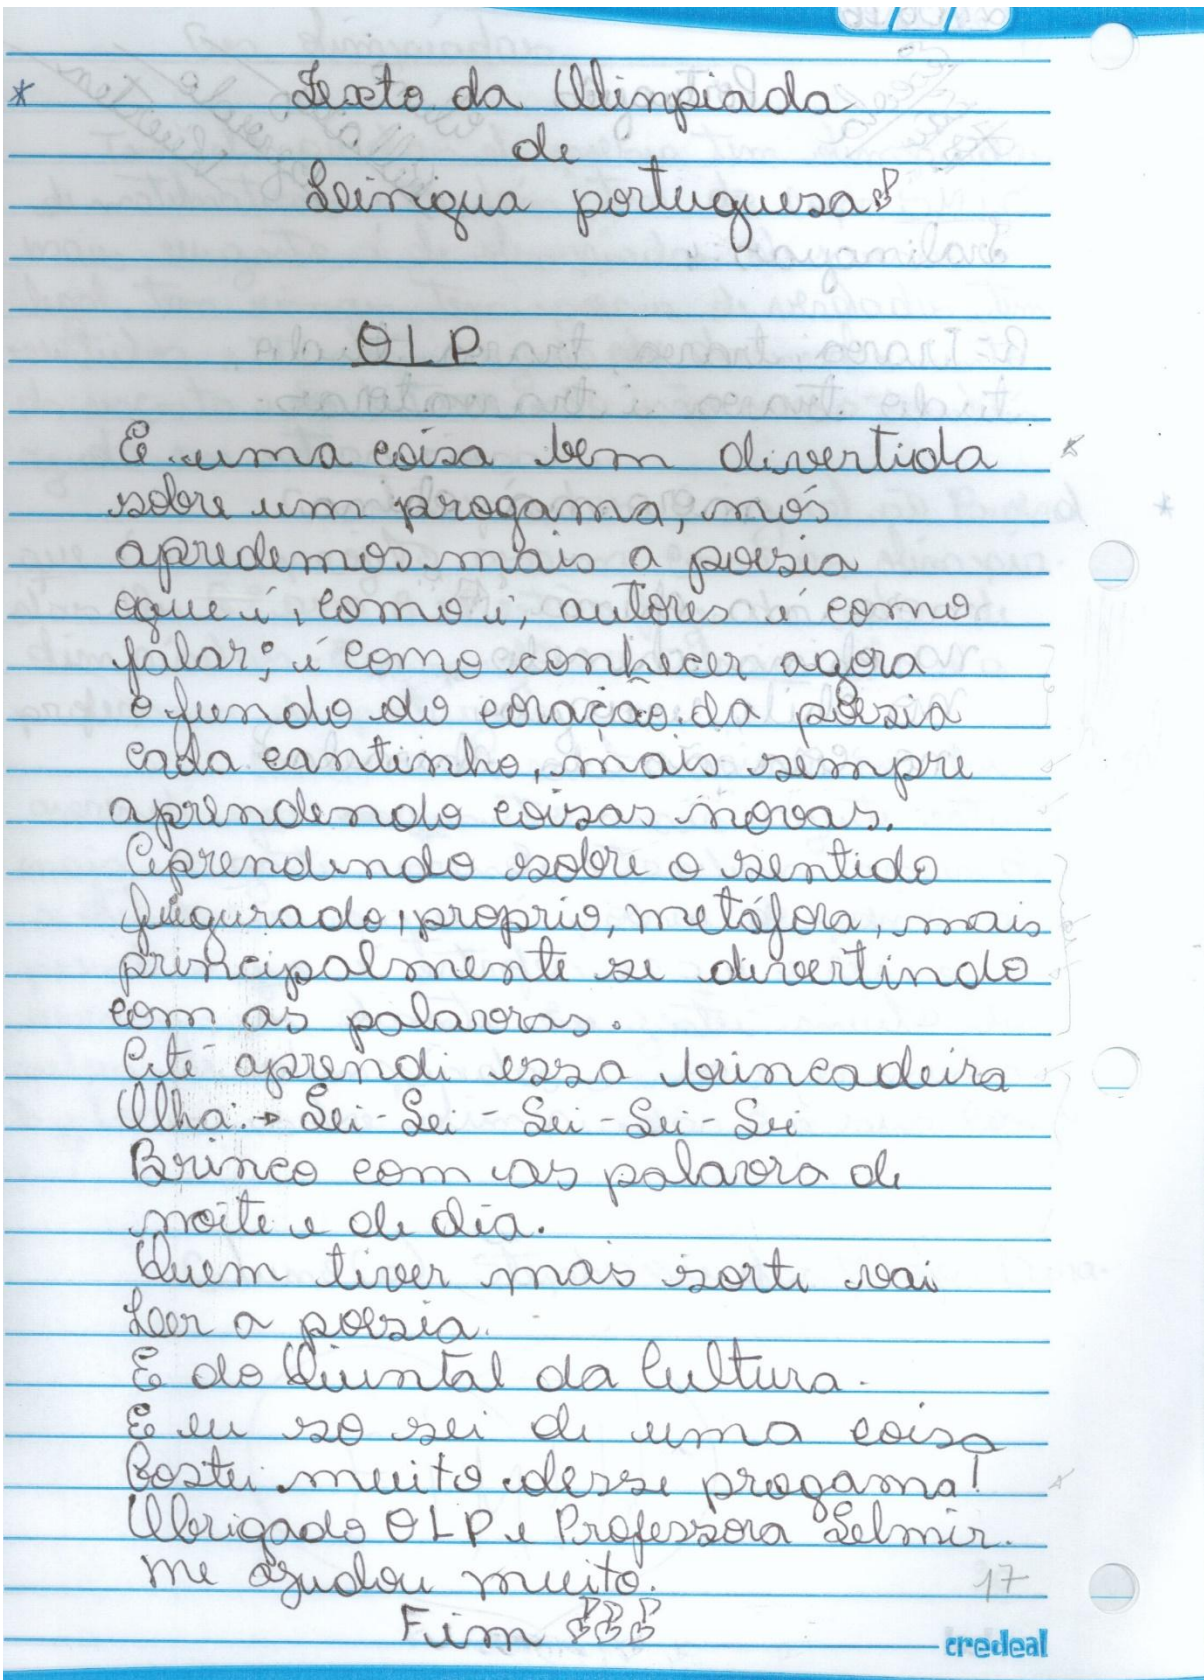 * Texto da Olimpiada
de
Leingua portuguesa
OLP
E uma coisa bem divertida
sobre um progama, nós
apredemos mais a poesia
oque é, como é, autores é como
falar; é como conhecer agora
o fundo do coração da poesia
cada cantinho, mais sempre
aprendendo coisas novas.
Aprendendo sobre o sentido
fuigurado, proprio, metáfora, mais
principalmente se divertindo
com as palavras.
Até aprendi essa brincadeira
Olha: → Lei - Lei - Lei - Lei - Lei
Brinco com as palavra de
noite e de dia.
Quem tiver mas sorte vai
Leer a poesia.
E do Quintal da Cultura.
E eu so sei de uma coisa
Gostei muito desse progama!
Obrigado OLP e Professora Selmir.
me ajudou muito.
17
Fim
credeal